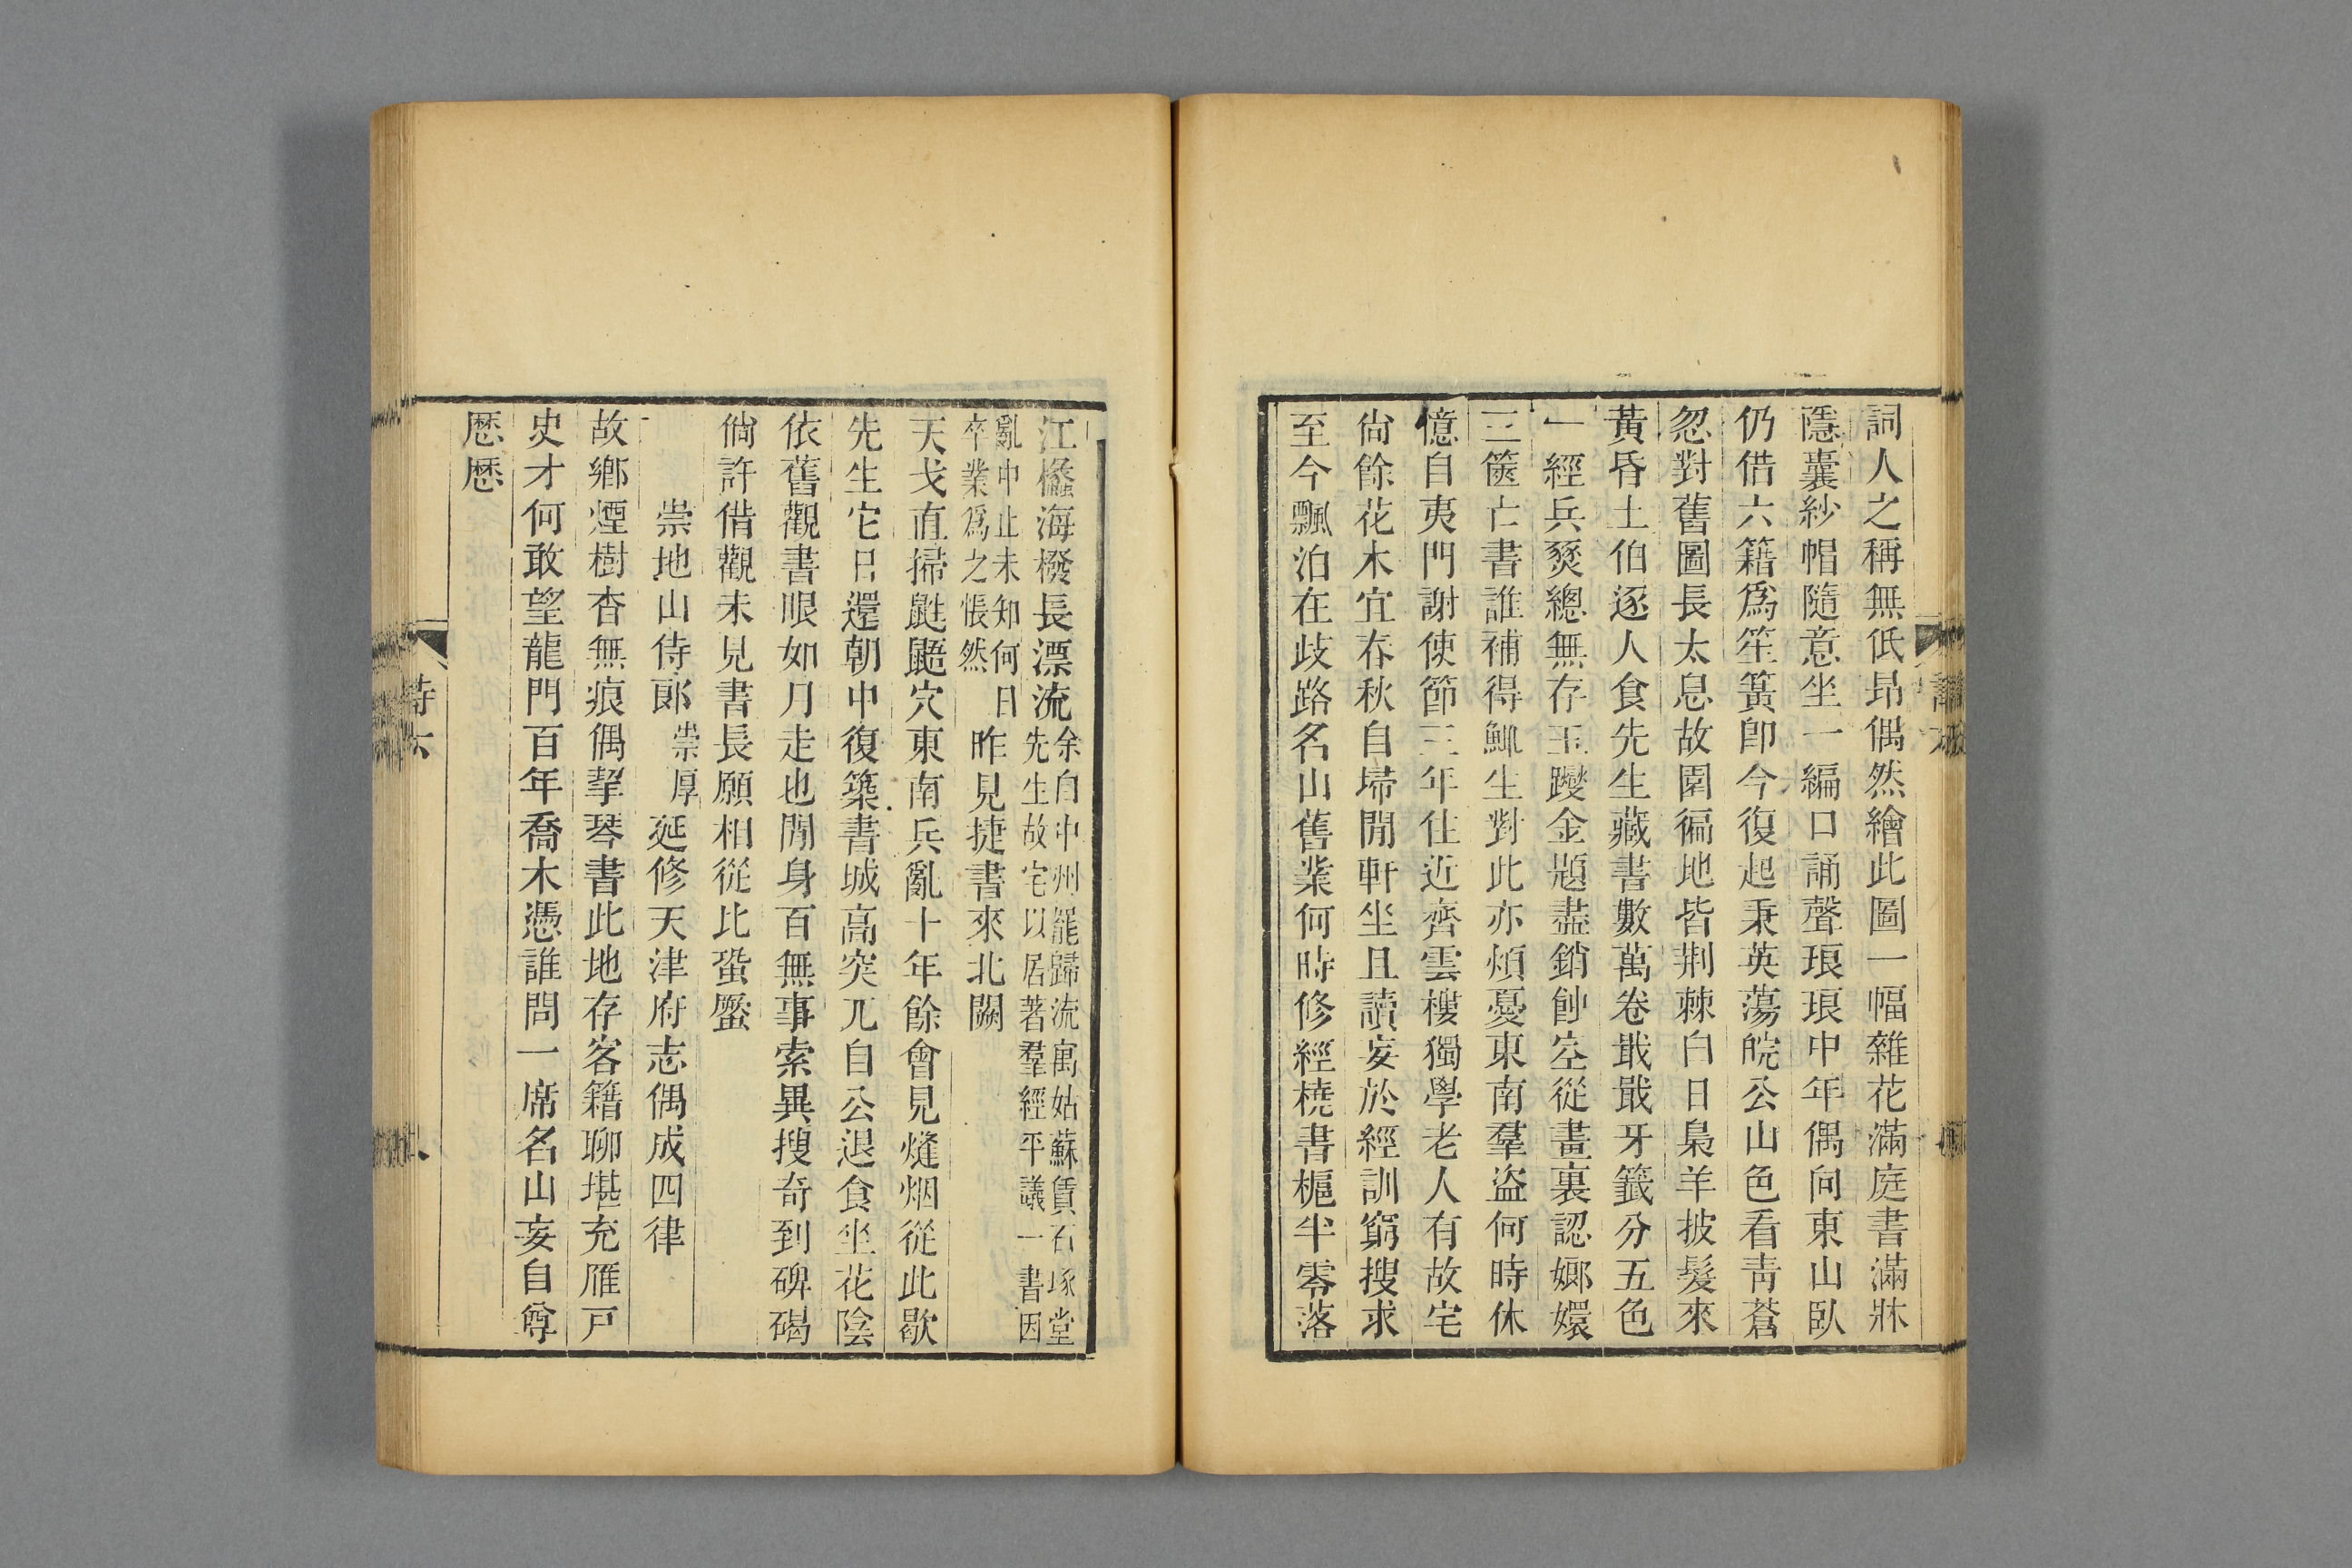 詞人之稱無低昻偶然繪此圖一幅雜花滿庭書滿牀
隱囊紗帽隨意坐一編口誦聲琅琅中年偶向東山臥
仍借六籍爲笙簧卽今復起秉英蕩皖公山色看靑蒼
忽對舊圖長太息故園徧地皆荆棘白日梟羊披髮來
黃昏土伯逐人食先生藏書數萬卷戢戢牙籤分五色
一經兵燹總無存玉躞金題盡銷鉇空從畫裏認嫏嬛
三篋亡書誰補得鯫生對此亦煩憂東南羣盜何時休
憶自夷門謝使節三年住近齊雲樓獨學老人有故宅
尙餘花木宜春秋自埽閒軒坐且讀妄於經訓窮搜求
至今飄泊在歧路名山舊業何時修經橈書槴半零落
江欚海橃長漂流余自中州罷歸流寓姑蘇賃石琢堂
先生故宅以居著羣經平議一書因
亂中止未知何日
卒業爲之悵然昨見捷書來北闕
天戈直掃鼪鼯穴東南兵亂十年餘會見熢烟從此歇
先生它日還朝中復築書城高突兀自公退食坐花陰
依舊觀書眼如月走也閒身百無事索異搜奇到碑碣
倘許借觀未見書長願相從比蛩蟨
崇地山侍郞崇厚延修天津府志偶成四律
故鄕煙樹杳無痕偶挈琴書此地存客籍聊堪充雁戸
史才何敢望龍門百年喬木憑誰問一席名山妄自尊
歷歷
詩六